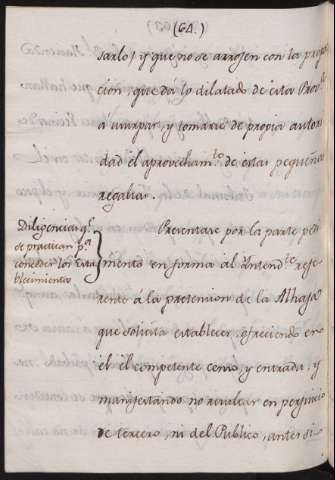 (64.)
sarlo) y que no se arrojen con la propor
ción, que dá lo dilatado de esta Prov.ª
a usurpar, y tomarse de propia autori
dad el aprovecham.to de estas pequeñas
regalias.
Diligencias q.e
se practican p.ª
conceder los Esta
blecimientos
Presentase por la parte pedi
mento en forma al Intend.te refe
rente á la pretension de la Alhaja
que solicita establecer, ofreciendo en
el el competente censo, y entrada, y
manifestando no resultar en perjuicio
de tercero, ni del Publico, antes si